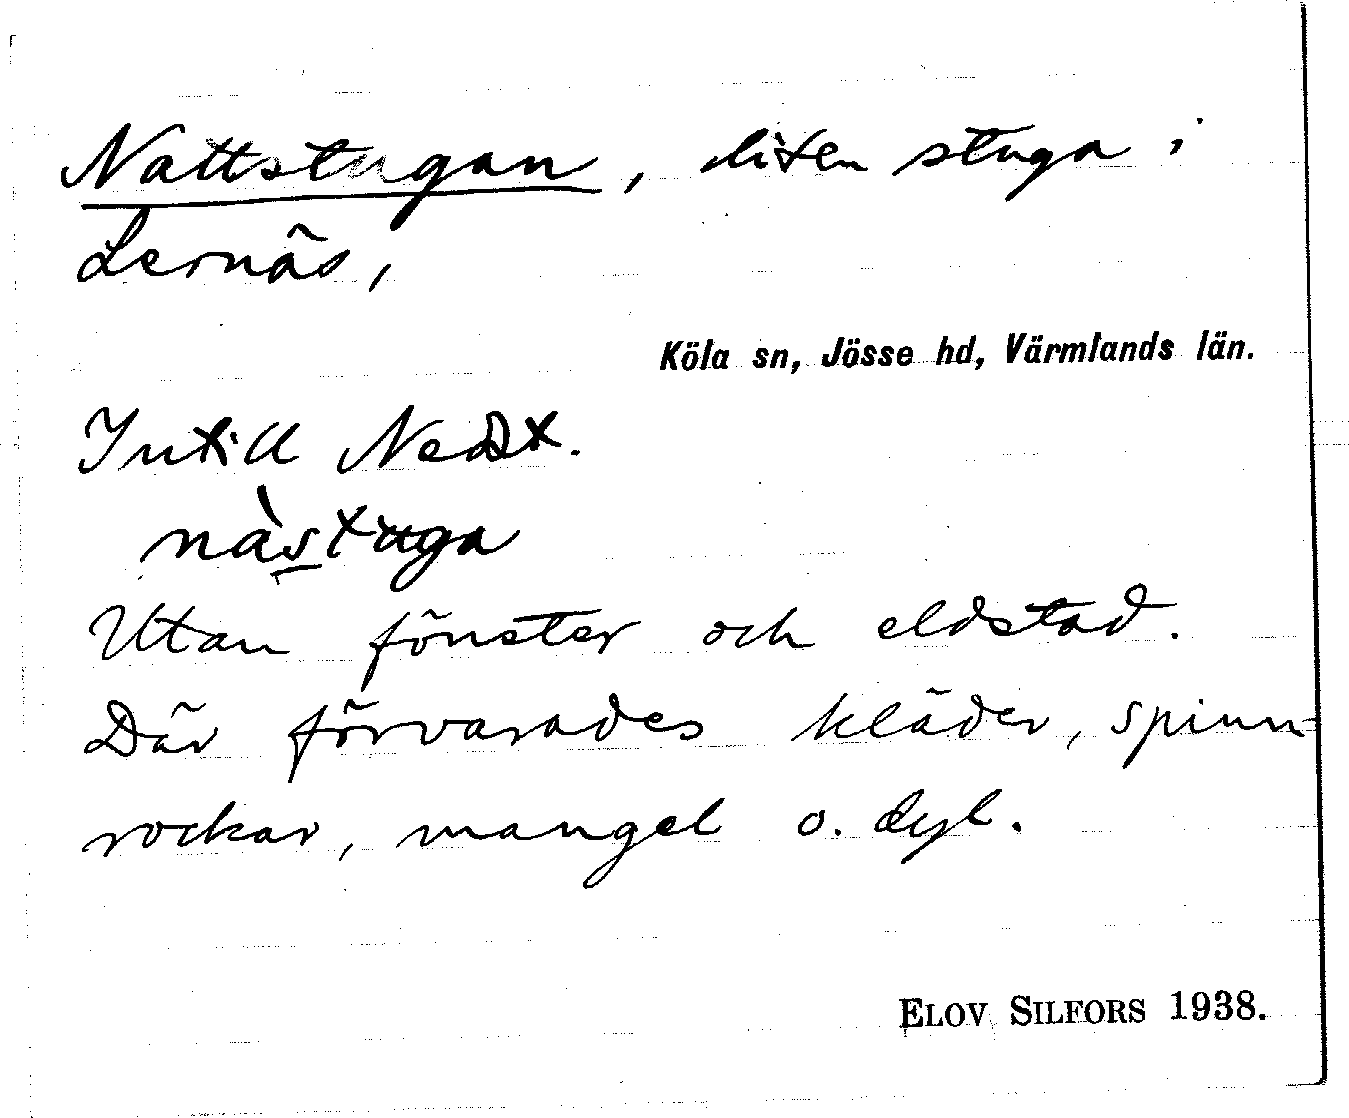 Nattstugan, liten stuga i
Lernäs,
Köla sn, Jösse hd, Värmlands län.
Intill Nedst.
nàstuga
Utan fönster och eldstad.
Där förvarades kläder, spinn-
rockar, mangel o. dyl.
ELOV SILFORS 1938.